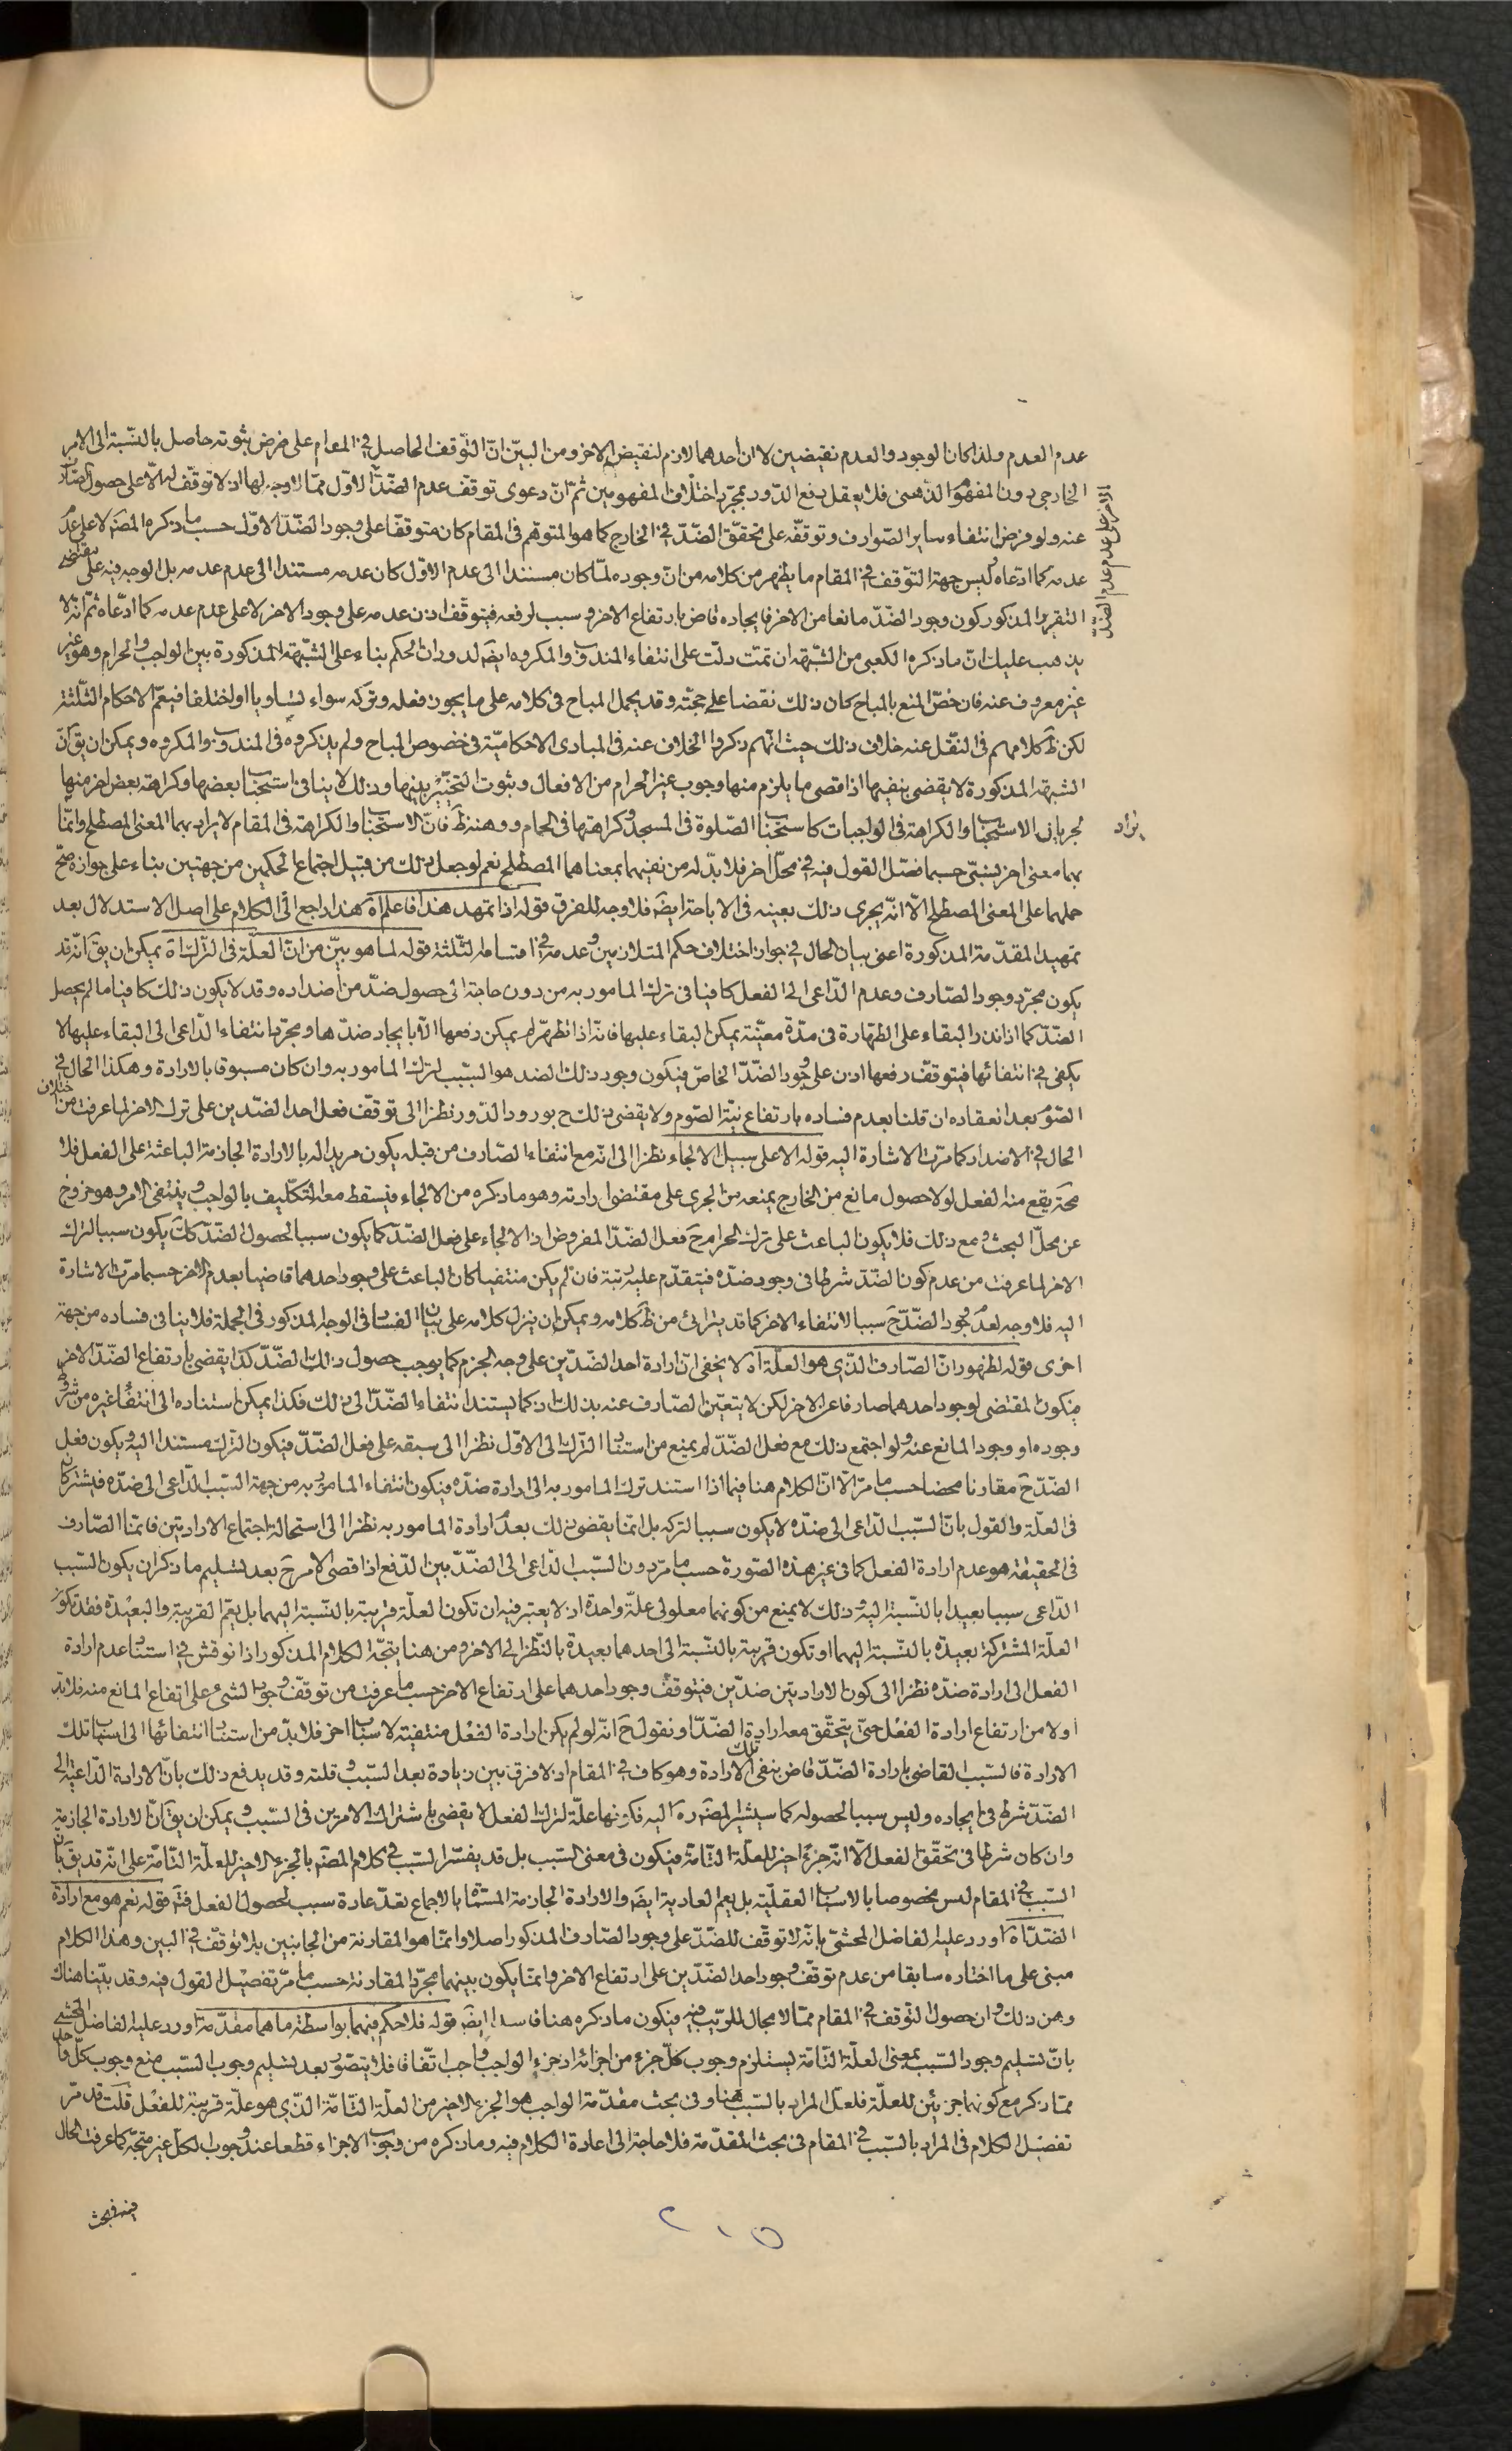 عدم العدم ولذا كان الوجود والعدم نقيضين لا ان احدهما لازم لنقيض الاخر ومن البيّن انّ التوّقف الحاصل في المقام على فرض ثبوته حاصل بالنسّبة الى الامر
الخارجى دون المفهوم الذهنى فلا يعقل دفع الدّور بمجرّد اختلاف المفهومين ثمّ انّ دعوى توقّف عدم الضّدّ الاوّل ممّا لا وجه لها اذ لا توقّف له الّا على حصول الصّارف
عنه ولو فرض انتفاء ساير الصّوارف وتوقّفه على تحقّق الضّدّ في الخارج كما هو المتوهّم فى المقام كان متوقّفا على وجود الضّدّ الاوّل حسب ما ذكره المصَ لا على عدم
عدمه كما ادّعاه وليس جهة التوّقف في المقام ما يظهر من كلامه من انّ وجوده لمّا كان مستندا الى عدم الاوّل كان عدمه مستندا الى عدم عدمه بل الوجه فيه على ما يقتضيه
التقرير المذكور كون وجود الضّدّ مانعا من الاخر فايجاده قاض بارتفاع الاخر وسبب لرفعه فيتوقّف اذن عدمه على وجود الاخر لا على عدم عدمه كما ادّعاه ثمّ انّه لا
يذهب عليك انّ ما ذكره الكعبى من الشّبهة ان تمّت دلّت على انتفاء المندوب والمكروه ايضَ لدوران الحكم بناء على الشّبهة المذكورة بين الواجب والحرام وهو غير
غير معروف عنه فان خصّ المنع بالمباح كان ذلك نقضا على حجّته وقد يحمل المباح فى كلامه على ما يجوز فعله وتركه سواء تساويا او اختلفا فيعمّ الاحكام الثّلثة
لكن ظَ كلامهم فى النقّل عنه خلاف ذلك حيث انّهم ذكروا الخلاف عنه فى المبادى الاحكاميّة فى خصوص المباح ولم يذكروه فى المندوب والمكروه ويمكن ان يقَ انّ
الشبهة المذكورة لا يقضى بنفيها اذ اقصى ما يلزم منها وجوب غير الحرام من الافعال وثبوت التخيّير بينها وذلك لا ينافى استحباب بعضها وكراهة بعض اخر منها
لجريان الاستحباب والكراهة فى الواجبات كاستحباب الصّلوة فى المسجد وكراهتها فى الحمام ووهنه ظَ فانّ الاستحباب والكراهة فى المقام لا يراد بهما المعنى المصطلح وانمّا يراد
بهما معنى اخر نسبىّ حسبما فصّل القول فيه في محلّ اخر فلا بدّ له من نفيهما بمعناهما المصطلح نعم لو جعل ذلك من قبيل اجتماع الحكمين من جهتين بناء على جوازه صحّ
حملهما على المعنى المصطلح الّا انّه يجرى ذلك بعينه فى الاباحة ايضَ فلا وجه للفرق قوله اذا تمهد هذا فاعلم آه هذا راجع الى الكلام على اصل الاستدلال بعد
تمهيد المقدّمة المذكورة اعنى بيان الحال في جواز اختلاف حكم المتلازمين وعدمه في اقسامه الثّلثة قوله لما هو بيّن من انّ العلّة فى الترّك آه يمكن ان يقَ انّه قد
يكون مجرّد وجود الصّارف وعدم الدّاعى الى الفعل كافيا فى ترك المامور به من دون حاجة الى حصول ضدّ من اضداده وقد لا يكون ذلك كافيا ما لم يحصل
الضّدّ كما اذا نذر البقاء على الطّهارة فى مدّة معيّنة يمكن البقاء عليها فانّه اذا تطهّر لم يمكن رفعها الّا بايجاد ضدّها ومجرّد انتفاء الدّاعى الى البقاء عليها لا
يكفى في انتفائها فيتوقّف رفعها اذن على وجود الضّدّ الخاصّ فيكون وجود ذلك الضد هو السّبب لترك المامور به وان كان مسبوقا بالارادة وهكذا الحال في
الصّوم بعد انعقاده ان قلنا بعدم فساده بارتفاع نيّة الصّوم ولا يقضى ذلك ح بورود الدّور نظرا الى توقّف فعل احد الضّدين على ترك الاخر لما عرفت من اختلاف
الحال في الاضداد كما مرّت الاشارة اليه قوله الا على سبيل الالجاء نظرا الى انّه مع انتفاء الصّارف من قبله يكون مريدا له بالارادة الجازمة الباعثة على الفعل فلا
محَة يقع منه الفعل لولا حصول مانع من الخارج يمنعه من الجرى على مقتضى ارادته وهو ما ذكره من الالجاء فيسقط معه التّكليف بالواجب وينتفى الامر وهو خروج
عن محلّ البحث ومع ذلك فلا يكون الباعث على ترك الحرام حَ فعل الضّدّ المفروض اذ الالجاء على فعل الضّدّ كما يكون سببا لحصول الضّدّ كَك يكون سببا لترك
الاخر لما عرفت من عدم كون الضّدّ شرطا فى وجود ضدّه فيتقدّم عليه رتبة فان لم يكن منتفيا كان الباعث على وجود احدهما قاضيا بعدم الاخر حسبما مرّت الاشارة
اليه فلا وجه لعدّ وجود الضّدّ حَ سببا لانتفاء الاخر كما قد يترائى من ظَ كلامه ويمكن ان ينزل كلامه على بيان الفساد فى الوجه المذكور فى الجملة فلا ينافى فساده من جهة
اخرى قوله لظهور انّ الصّارف الذّى هو العلّة آه لا يخفى انّ ارادة احد الضّدّين على وجه الجزم كما يوجب حصول ذلك الضّدّ كذا يقضى بارتفاع الضّدّ الاخر
فيكون المقتضى لوجود احدهما صارفا عن الاخر لكن لا يتعيّن الصّارف عنه بذلك اذ كما يستند انتفاء الضّدّ الى ذلك فكذا يمكن استناده الى انتفاء غيره من شروط
وجوده او وجود المانع عنه ولو اجتمع ذلك مع فعل الضّدّ لم يمنع من استناد الترّك الى الاوّل نظرا الى سبقه على فعل الضّدّ فيكون الترّك مستندا اليه ويكون فعل
الضّدّ حَ مقارنا محضا حسب ما مرّ الّا انّ الكلام هنا فيما اذا استند ترك المامور به الى ارادة ضدّه فيكون انتفاء المامور به من جهة السّبب الدّاعى الى ضدّه فيشتركان
فى العلّة والقول بانّ السّبب الدّاعى الى ضدّه لا يكون سببا لتركه بل انمّا يقضى ذلك بعدم ارادة المامور به نظرا الى استحالة اجتماع الارادتين فانمّا الصّارف
فى الحقيقة هو عدم ارادة الفعل كما فى غير هذه الصّورة حسب ما مرّ دون السّبب الدّاعى الى الضّدّ بيّن الدّفع اذ اقصى الامر حَ بعد تسليم ما ذكر ان يكون السّبب
الدّاعى سببا بعيدا بالنّسبة اليه وذلك لا يمنع من كونهما معلولى علّة واحدة اذ لا يعتبر فيه ان تكون العلّة قريبة بالنّسبة اليهما بل يعمّ القريبة والبعيدة فقد تكون
العلّة المشتركة بعيدة بالنّسبة اليهما او تكون قريبة بالنّسبة الى احدهما بعيدة بالنّظر الى الاخر ومن هنا يتجّه الكلام المذكور اذا نوقش في استناد عدم ارادة
الفعل الى ارادة ضدّه نظرا الى كون الارادتين ضدّين فيتوقّف وجود احدهما على ارتفاع الاخر حسب ما عرفت من توقّف وجود الشىء على ارتفاع المانع منه فلا بدّ
اولا من ارتفاع ارادة الفعل حتّى يتحقّق معه ارادة الضّدّ او نقول حَ انّه لو لم يكن ارادة الفعل منتفية لاسباب اخر فلا بدّ من استناد انتفائها الى اسباب تلك
الارادة فالسّبب القاضى بارادة الضّدّ قاض بنفى تلك الارادة وهو كاف في المقام اذ لا فرق بين زيادة بعد السّبب وقلته وقد يدفع ذلك بانّ الارادة الدّاعية الى
الضّدّ شرط فى ايجاده وليس سببا لحصوله كما سيشير المصَ ره اليه فكونها علّة لترك الفعل لا يقضى باشتراك الامرين فى السّبب ويمكن ان يقَ انّ الارادة الجازمة
وان كان شرطا فى تحقّق الفعل الّا انّه جزء اخير للعلّة التّامّة فيكون فى معنى السّبب بل قد يفسّر السّبب في كلام المصَ بالجزء الاخير للعلّة التّامّة على انّه قد يقَ بانّ
السّبب في المقام ليس مخصوصا بالاسباب العقليّة بل يعم العادية ايضَ والارادة الجازمة المسمّاة بالاجماع تعدّ عادة سبب لحصول الفعل فتَم قوله نعم هو مع ارادة
الضّدّ آه اورد عليه الفاضل المحشّى بانّه لا توقّف للضّدّ على وجود الصّارف المذكور اصلا وانمّا هو المقارنة من الجانبين بلا توقّف في البين وهذا الكلام
مبنى على ما اختاره سابقا من عدم توقّف وجود احد الضّدّين على ارتفاع الاخر وانمّا يكون بينهما مجرّد المقارنة حسب ما مرّ تفصيل القول فيه وقد بيّنا هناك
وهن ذلك وان حصول التّوقف في المقام ممّا لا مجال للرّيب فيه فيكون ما ذكره هنا فاسدا ايضَ قوله فلا حكم فيهما بواسطة ما هما مقدّمة اورد عليه الفاضل المحشى
بانّ تسليم وجود السّبب بمعنى العلّة التّامّة يستلزم وجوب كلّ جزء من اجزائه اذ جزء الواجب واجب اتّفاقا فلا يتصوّر بعد تسليم وجوب السّبب منع وجوب كلّ واحد
ممّا ذكر مع كونهما جزئين للعلّة فلعلّ المراد بالسّبب هنا وفى بحث مقدّمة الواجب هو الجزء الاخير من العلّة التّامّة الذّى هو علّة قريبة للفعل قلت قد مرّ
تفصيل الكلام فى المراد بالسّبب في المقام فى بحث المقدّمة فلا حاجة الى اعادة الكلام فيه وما ذكره من وجوب الاجزاء قطعا عند وجوب الكلّ غير متجّه كما عرفت الحال
فيه فى بحث
٢١٥